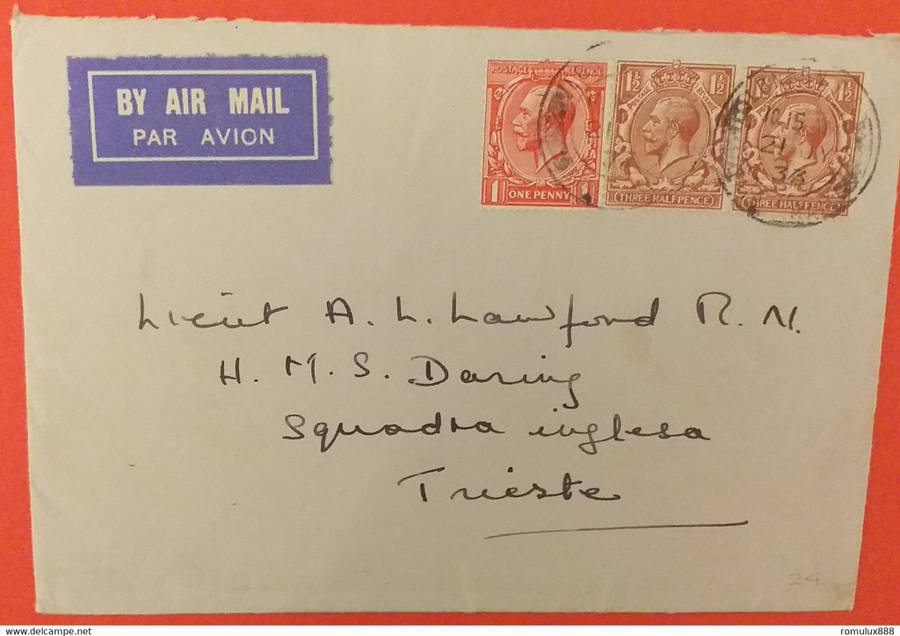 BY AIR MAIL
PAR AVION
POSTAGE REVENUE
1 ONE PENNY 1
1½ 1½
THREE HALFPENCE
1½
THREE HALFPENCE
10.15
21
33
Lieut A. L. Lawford R. N.
H. M. S. Daring
Squadra inglesa
Trieste
24
delcampe.net
romulux888